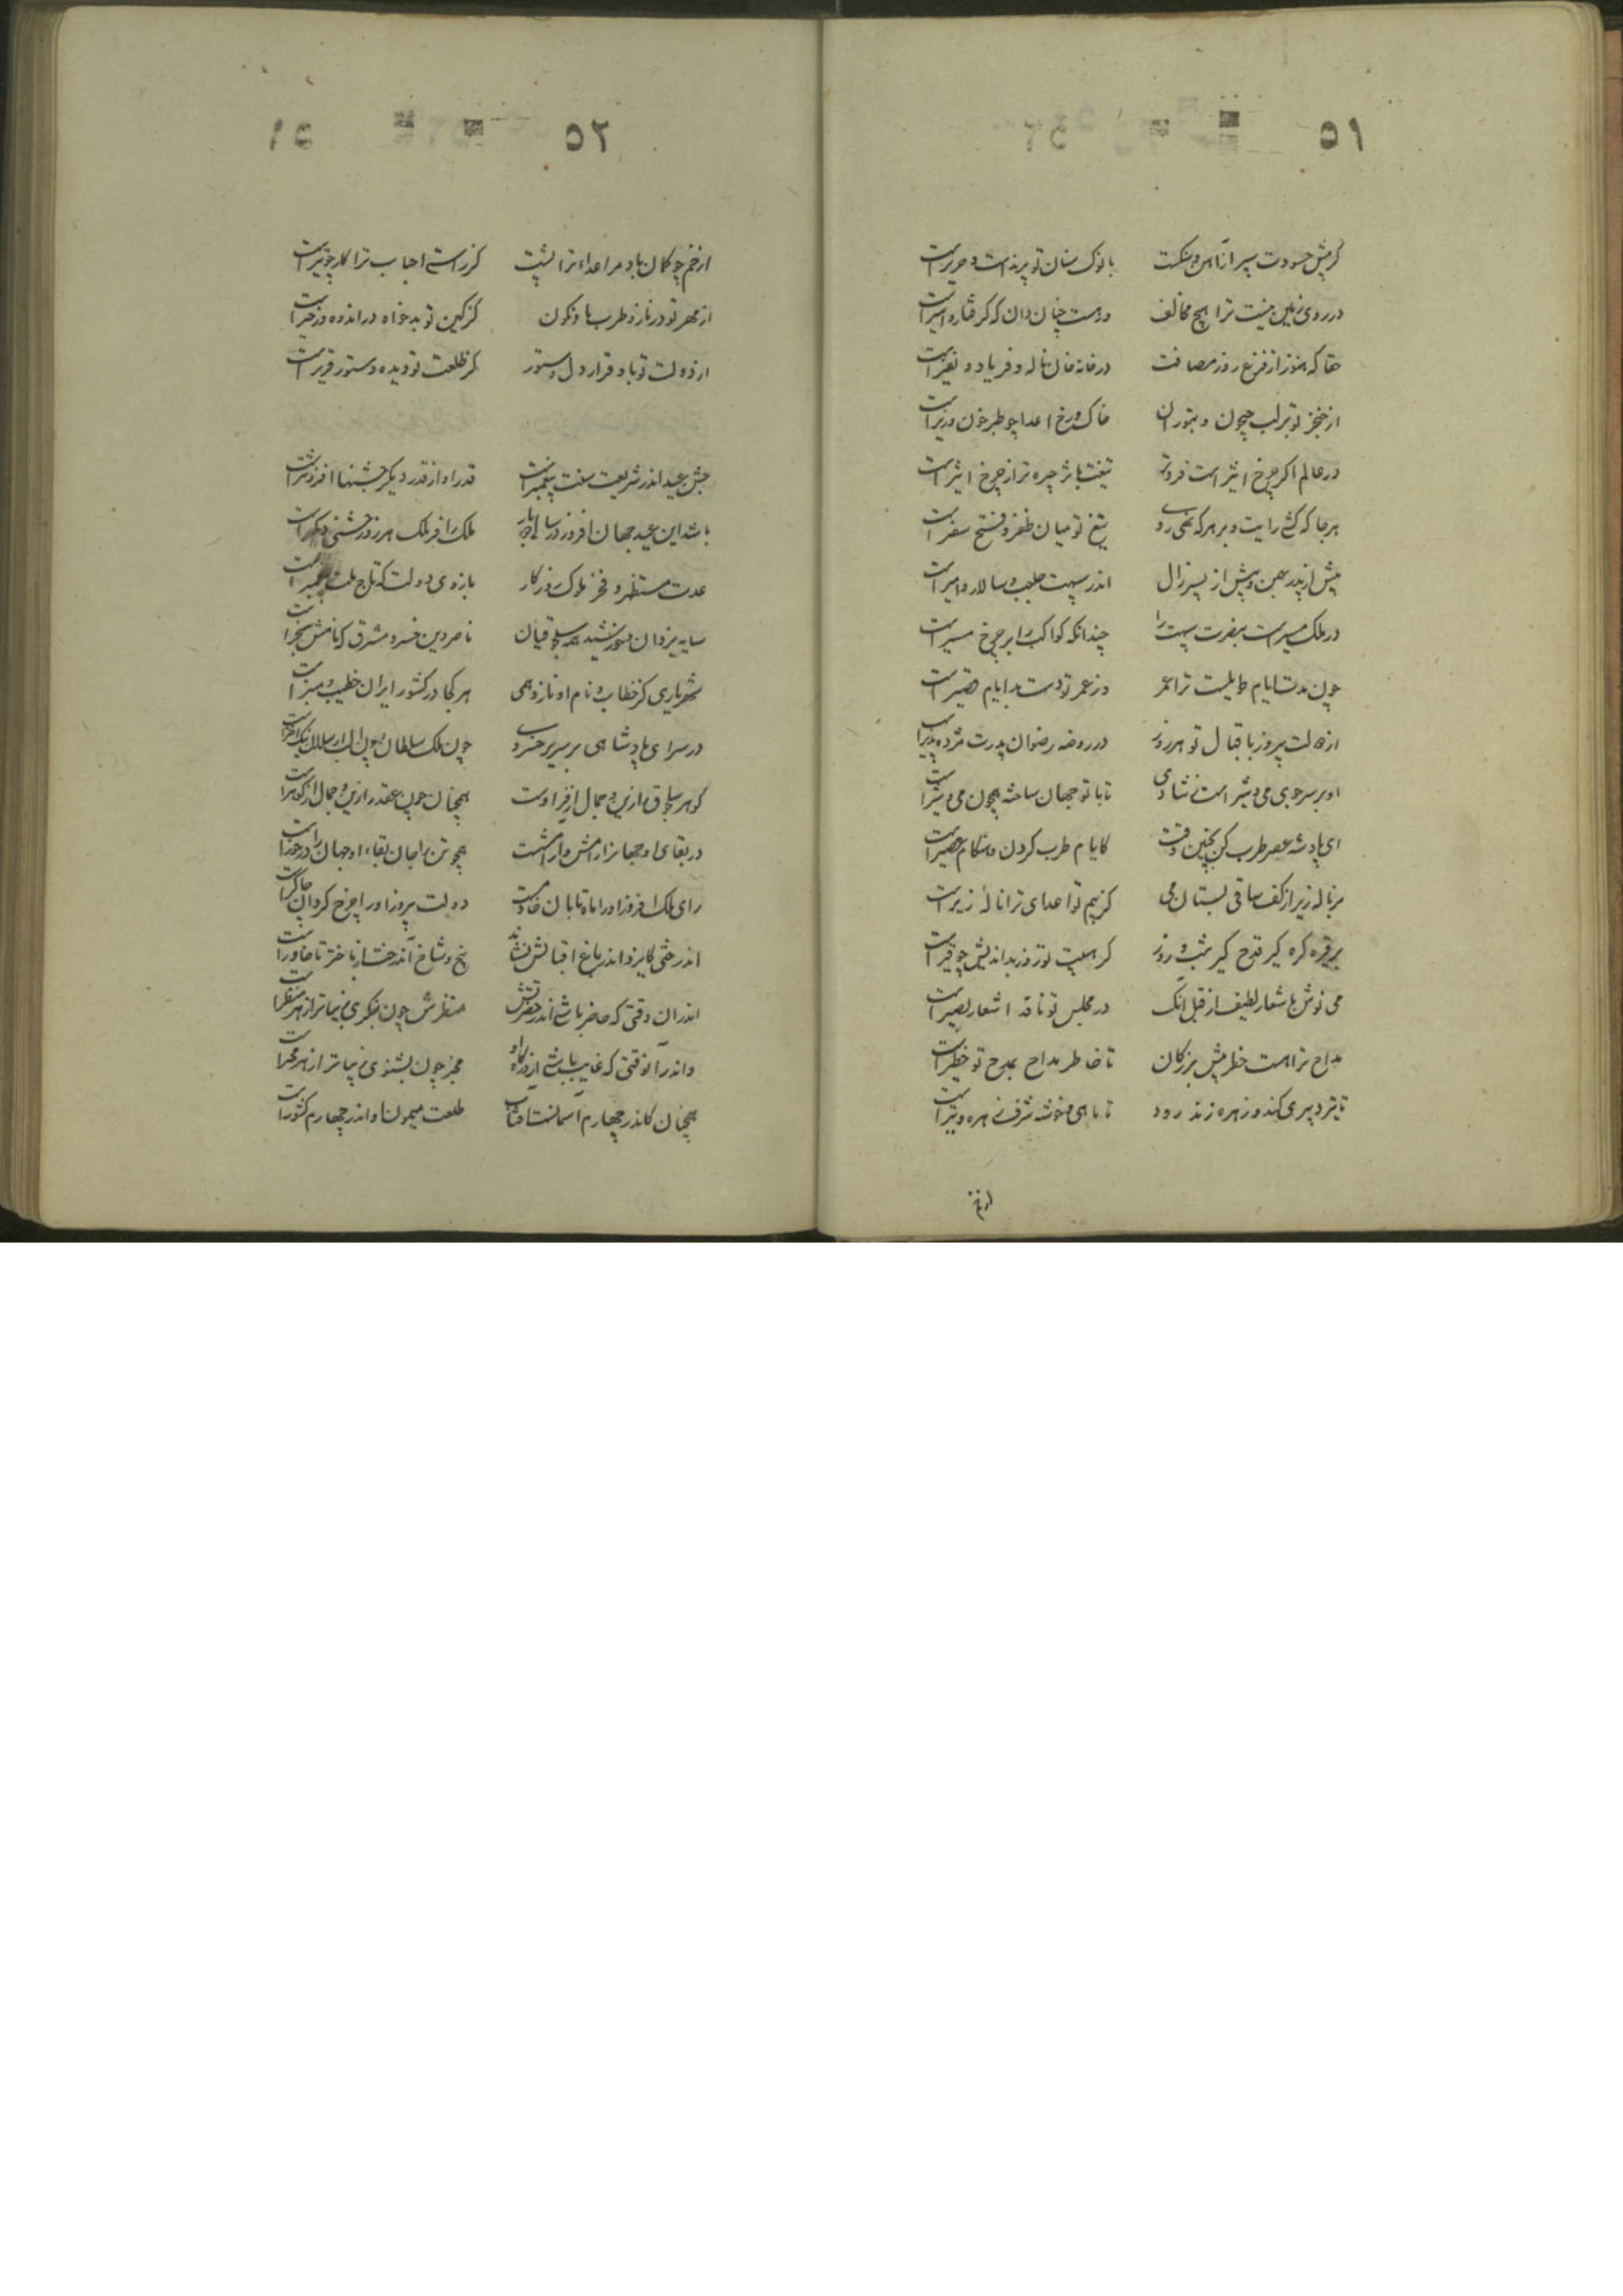 ٥١
گر پیش حسودت سپر از آهن و سنگست با نوک سنان تو پرند است و حریر است
در روی زمین نیست ترا هیچ مخالف ورهست چنان دان که گرفتار و اسیر است
حقا که هنوز از فزع روز مصافت در خانه خان ناله و فریاد و نفیر است
از خنجر تو بر لب جیحون و بتوران خاک و رخ اعدا چو طبرخون و زریر است
در عالم اگر چرخ اثیر است فروتر تیغت باثر چیره تر از چرخ اثیر است
هرجا که کشی رایت و بر هر که نهی روی تیغ تو میان ظفر و فتح سفیر است
پیش از پدر بهمن و پیش از پسر زال اندر سپهت حاجب و سالار و امیر است
در ملک مسیر است بنصرت سپهت را چندانکه کواکب را بر چرخ مسیر است
چون مدت ایام طویلست ترا عمر وز عمر تو دست بد ایام قصیر است
از دولت پیروز باقبال تو هر روز در روضه رضوان پدرت مژده پذیر است
او بر سر جوی می و شیر است ز شادی تا با تو جهان ساخته چون می و شیر است
ای پادشه عصر طرب کن بچنین وقت کایام طرب کردن و هنگام عصیر است
بر ناله زیر از کف ساقی بستان می کز بیم تو اعدای ترا ناله زیر است
بر قره گره گیر قدح گیر شب و روز کز هیبت تو روز بداندیش چو قیر است
می نوش باشعار لطیف از قبل آنک در مجلس تو ناقد اشعار بصیر است
مداح ترا هست خطر پیش بزرگان تا خاطر مداح بمدح تو خطیر است
تا تیر دبیری کند و زهره زند رود تا ماهی و خوشه شرف زهره و تیر است
از خم
٥٢
از خم چو کمان باد مر اعداء ترا پشت کز راستی احباب ترا کار چو تیر است
از مهر تو در ناز و طرب باد نکو خواه کز کین تو بدخواه در اندوه و زحیر است
از دولت تو باد قرار دل دستور کز طلعت تو دیده دستور قریر است
جشن عید اندر شریعت سنت پیغمبر است قدر او از قدر دیگر جشنها افزونتر است
باشد این عید جهان افروز در سالی دوبار ملک را فر ملک هر روز جشنی دیگر است
عدت مستظهر و فخر ملوک روزگار بازوی دولت که تاج ملت پیغمبر است
سایه یزدان و خورشید همه سلجوقیان ناصر دین خسرو مشرق که نامش سنجر است
شهریاری کز خطاب و نام او نازد همی هر کجا در کشور ایران خطیب و منبر است
در سرای پادشاهی بر سریر خسروی چون ملک سلطان و چون الب ارسلان نیک اختر است
گوهر سلجوق را زین و جمال از فر اوست همچنان چون عقد را زین و جمال از گوهر است
در بقای او جهانرا رامش و آرامشست همچو تن را جان بقاء او جهان را درخور است
رای ملک افروز او را ماه تابان خادمست دولت پیروز او را چرخ گردان چاکر است
اندر ختی کایزد اندر باغ اقبالش نشاند بیخ و شاخ آندرخت از باختر تا خاور است
اندران وقتی که حاضر باشی اندر حضرتش منظرش چون بنگری زیباتر از هر منظر است
و اندر آنوقتی که غایب باشی از درگاه او مخبر چون بشنوی زیباتر از هر مخبر است
همچنان کاندر چهارم آسمانست آفتاب طلعت میمون او اندر چهارم کشور است